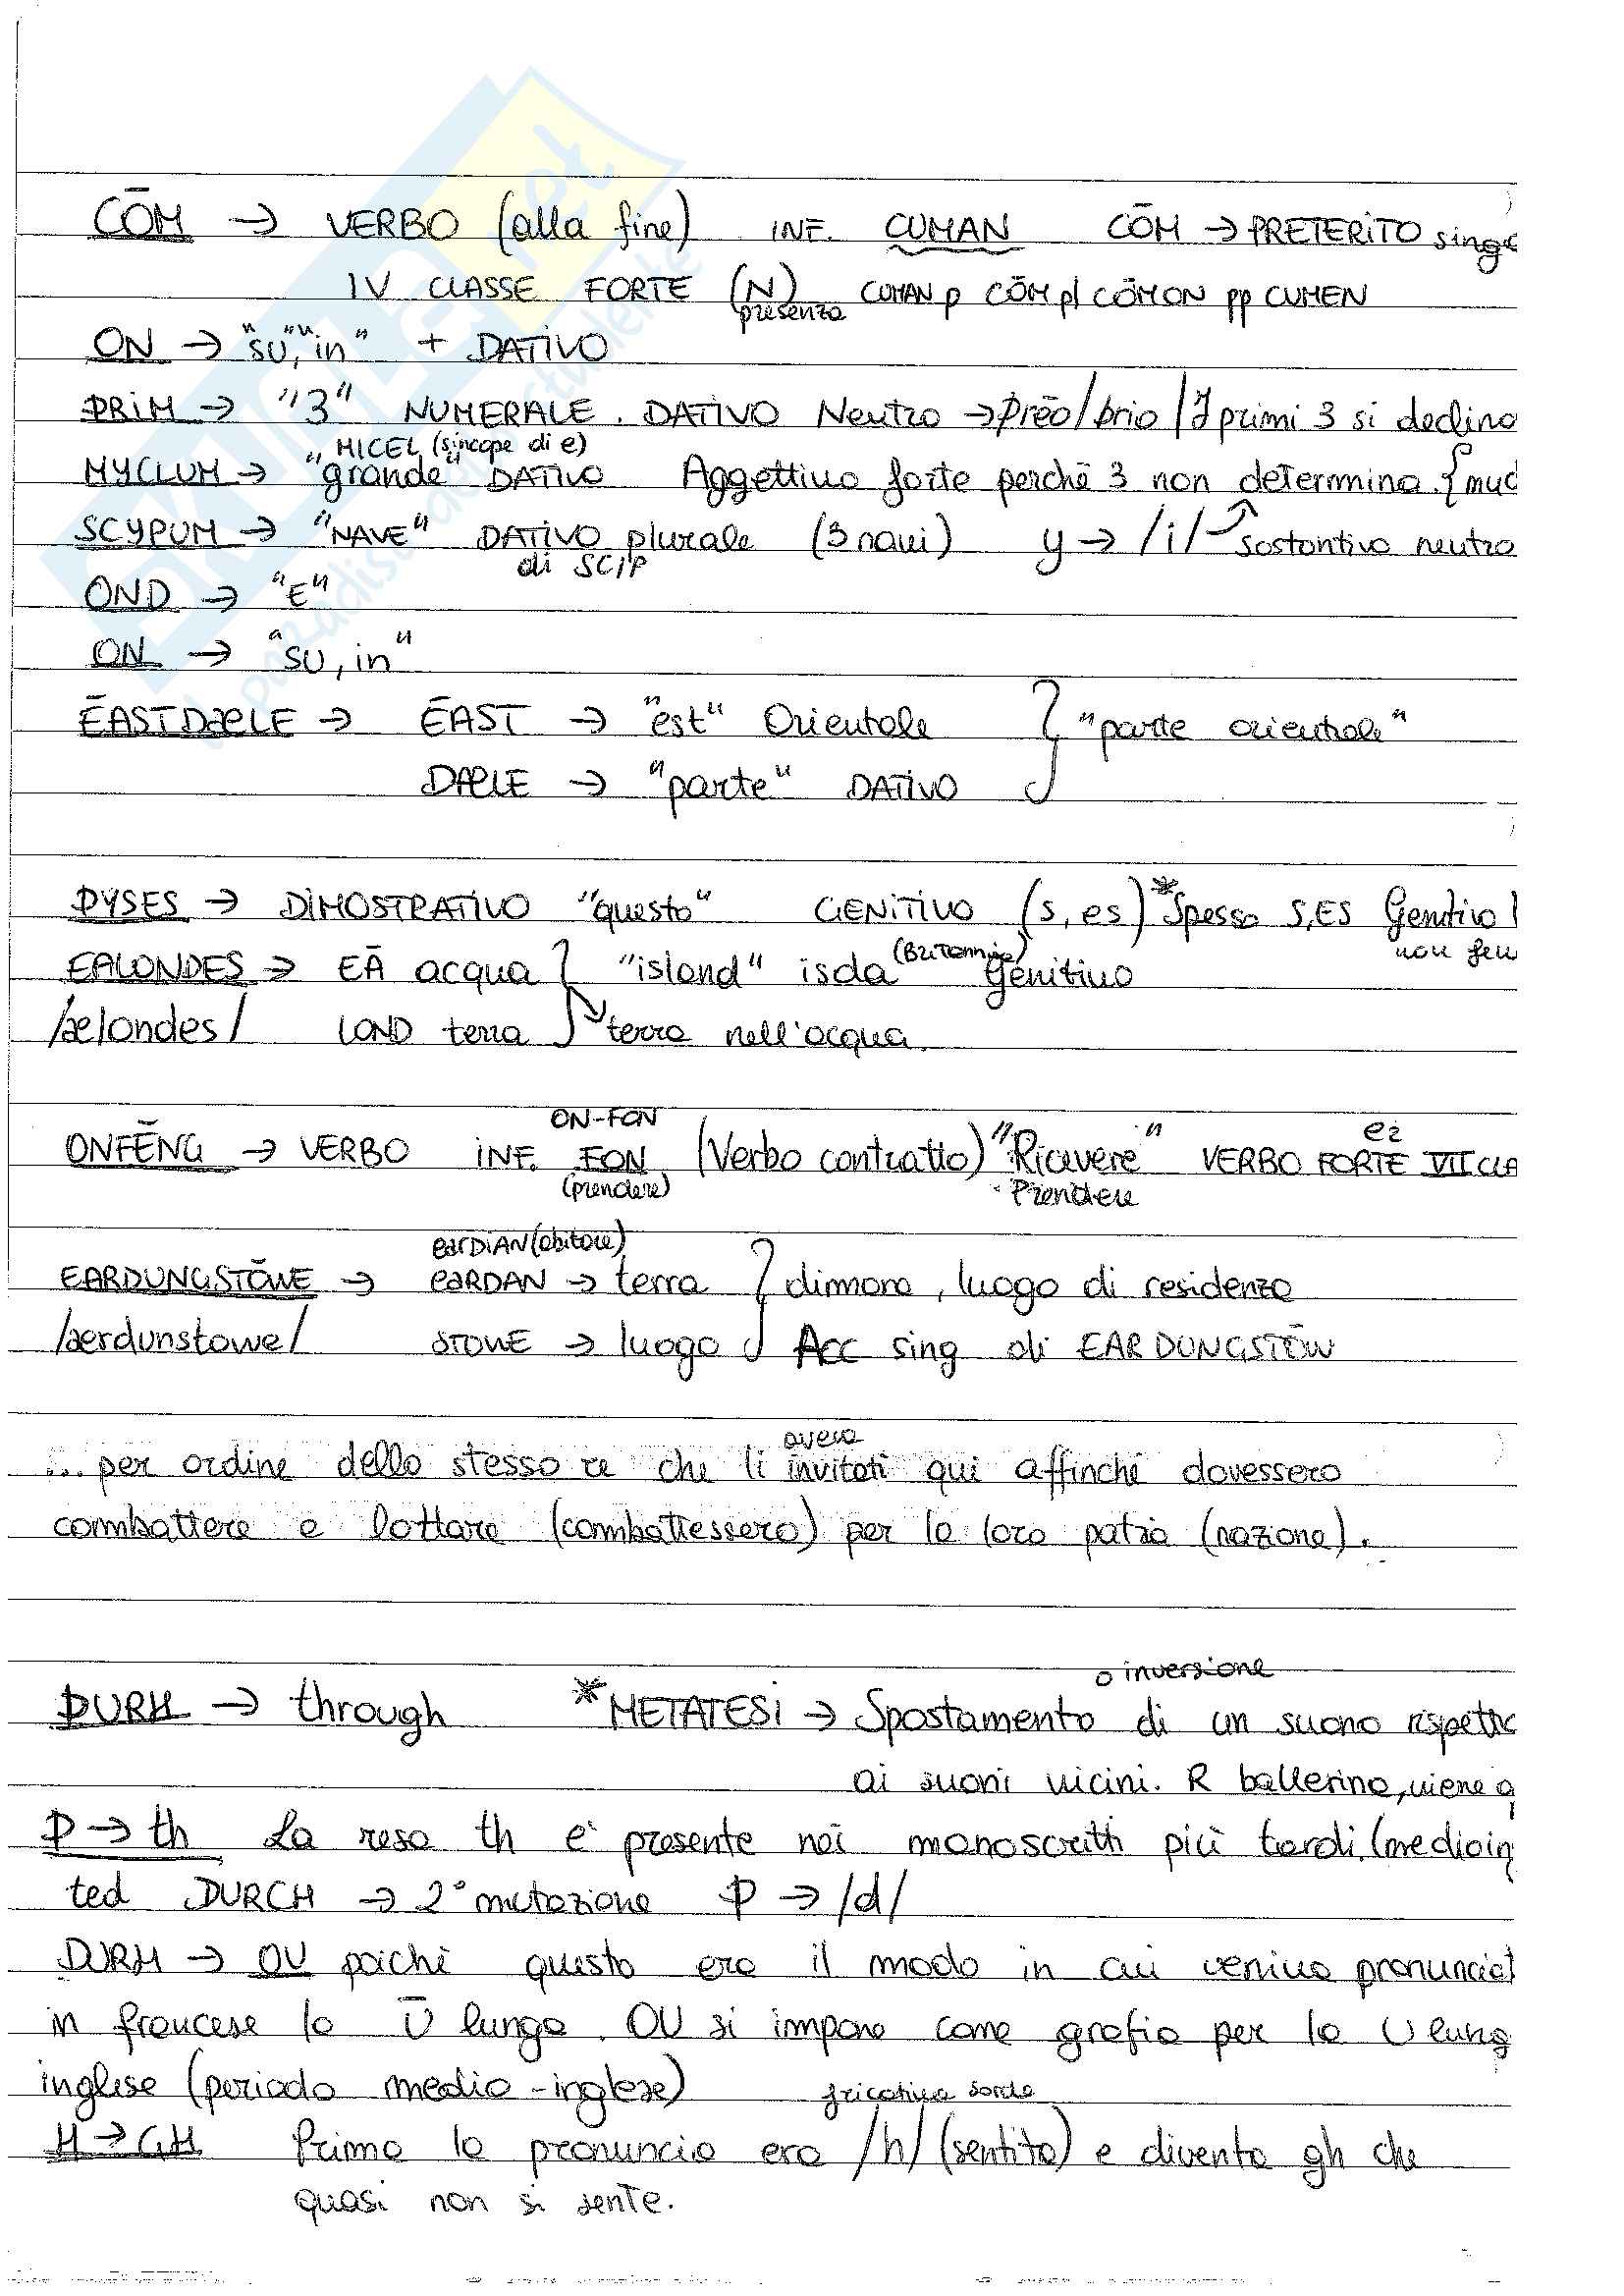 CŌM → VERBO (alla fine) INF. CUMAN CŌM → PRETERITO sing
IV CLASSE FORTE (N) CUMAN p CŌM pl CŌMON pp CUMEN
presenza
ON → "su", "in" + DATIVO
ÞRIM → "3" NUMERALE. DATIVO Neutro → þrēo/þrio / I primi 3 si declino
MICEL (sincope di e)
MYCLUM → "grande" DATIVO Aggettivo forte perchè 3 non determina. {muc
SCYPUM → "NAVE" DATIVO plurale (3 navi) y → /i/ → sostantivo neutro
di SCIP
OND → "E"
ON → "SU, in"
ĒASTDæLE → ĒAST → "est" Orientale } "parte orientale"
DÆLE → "parte" DATIVO
ÞYSES → DIMOSTRATIVO "questo" GENITIVO (s, es) *Spesso S, ES Genitivo
non fem
(Britannia)
EALONDES → EĀ acqua } "island" isola Genitivo
/ælondes/ LOND terra } → terra nell'acqua.
ON-FON ei
ONFĒNG → VERBO INF. FON (Verbo contratto) "Ricevere" VERBO FORTE VII CLA
(prendere) Prendere
earDIAN (abitare)
EARDUNGSTŌWE → eARDAN → terra } dimora, luogo di residenza
/ærdunstowe/ STOWE → luogo } Acc sing di EARDUNGSTŌW
avevo
... per ordine dello stesso re che li invitati qui affinché dovessero
combattere e lottare (combattessero) per la loro patria (nazione).
o inversione
ÞURH → through *METATESI → Spostamento di un suono rispetto
ai suoni vicini. R ballerina, viene
Þ → th La resa th e' presente nei manoscritti più tardi. (medioin
ted DURCH → 2° mutazione Þ → /d/
ÞURH → OU poichè questo era il modo in cui veniva pronunciat
in francese la Ū lunga. OU si impone come grafia per la U lung
inglese (periodo medio-inglese)
fricativa sorda
H → GH Prima la pronuncia era /h/ (sentita) e diventa gh che
quasi non si sente.